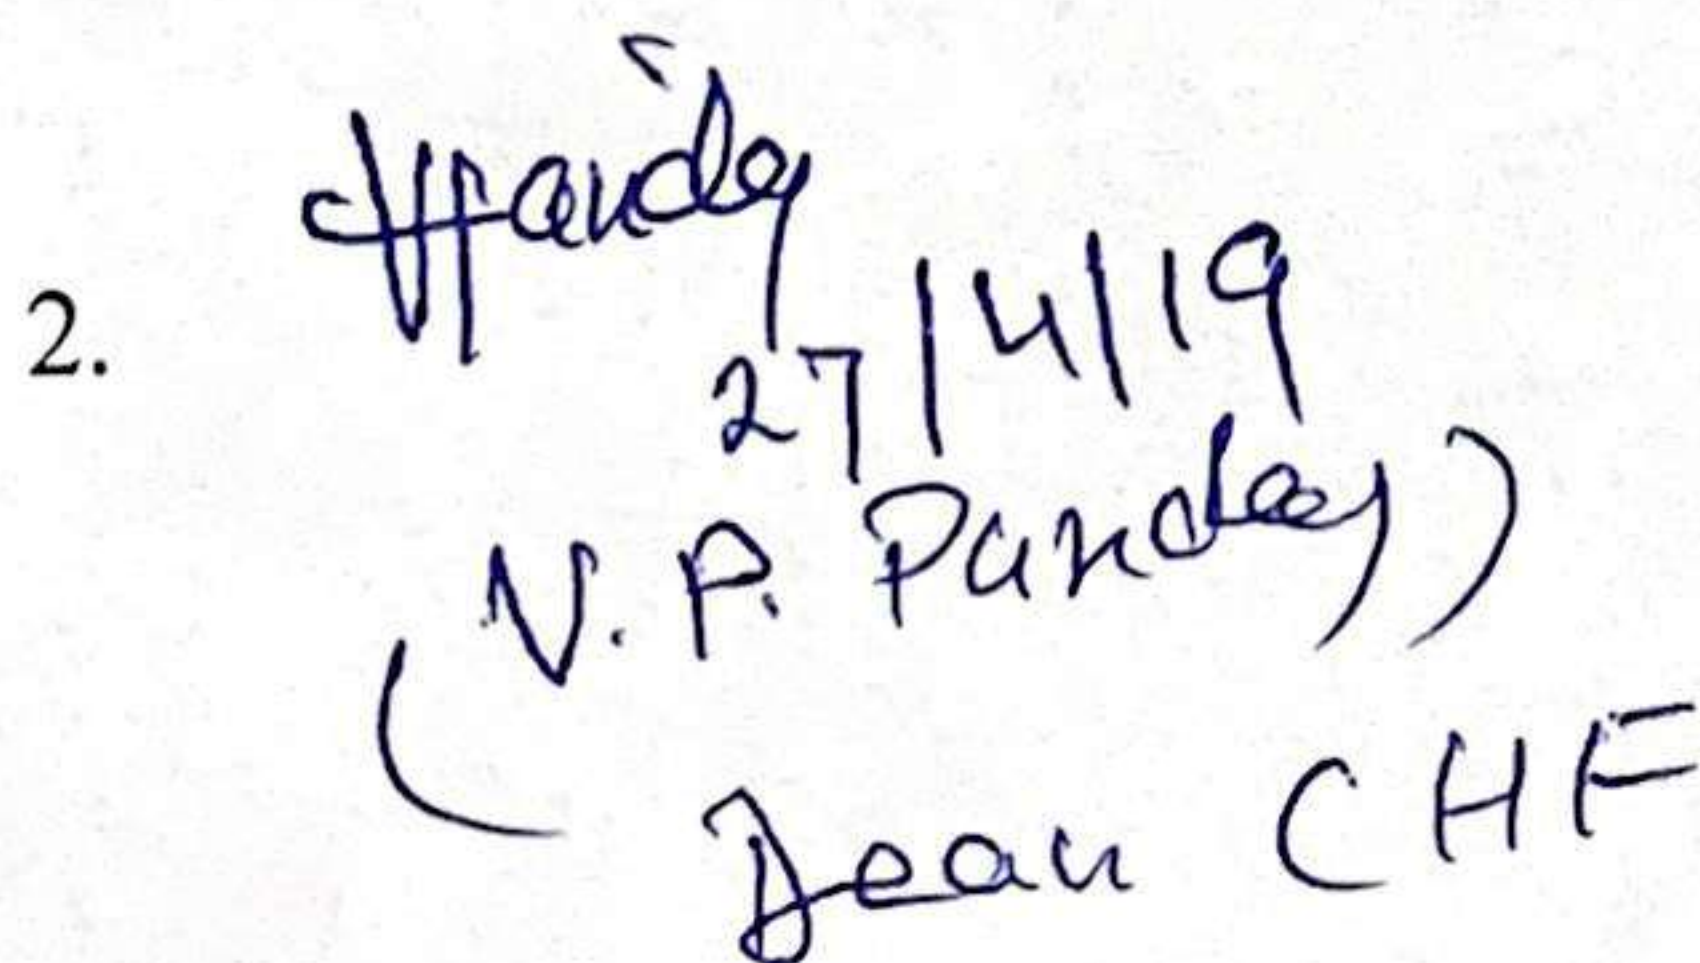 2.
VPandey
27/4/19
(V.P. Pandey)
Dean CHF